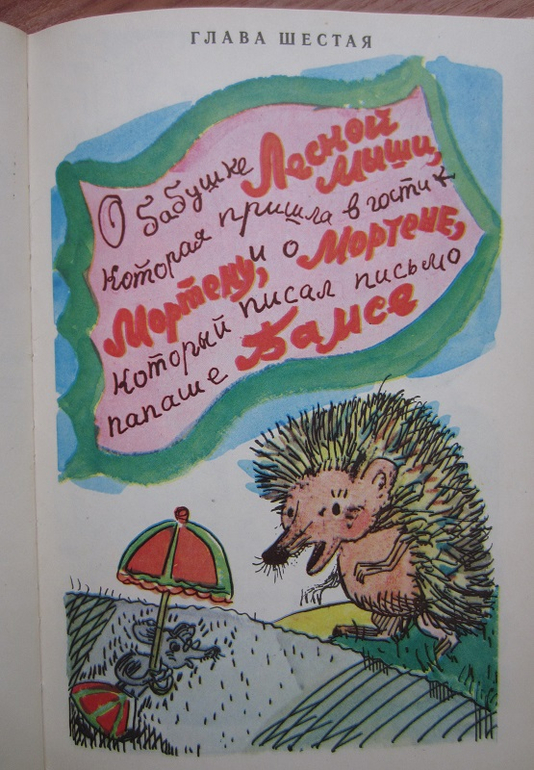 ГЛАВА ШЕСТАЯ
О бабушке Лесной
Мыши,
которая пришла в гости к
Мортену, и о Мортене,
который писал письмо
папаше Бамсе